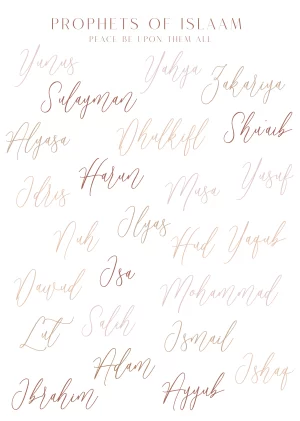 PROPHETS OF ISLAAM
PEACE BE UPON THEM ALL
Yunus Yahya Zakariya
Sulayman
Alyasa Dhulkifl Shuaib
Harun
Idris Musa Yusuf
Ilyas
Nuh Hud Yaqub
Isa
Dawud Mohammad
Lut Salih Ismail
Adam Ishaq
Ibrahim Ayyub